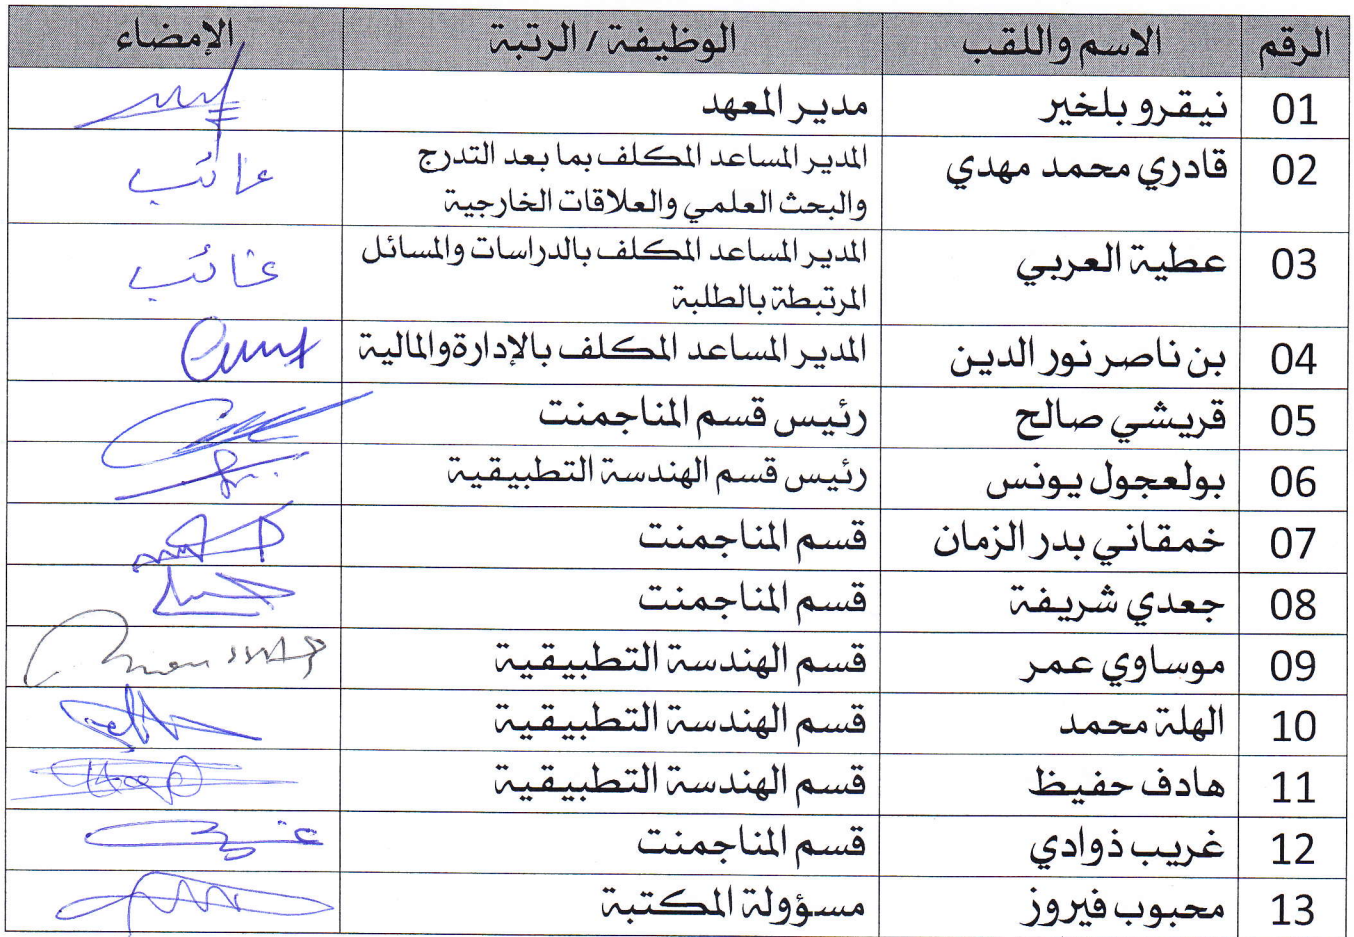 الرقم الاسم واللقب الوظيفة / الرتبة الإمضاء
01 نيقرو بلخير مدير المعهد
02 قادري محمد مهدي المدير المساعد المكلف بما بعد التدرج
والبحث العلمي والعلاقات الخارجية غائب
03 عطية العربي المدير المساعد المكلف بالدراسات والمسائل
المرتبطة بالطلبة غائب
04 بن ناصر نور الدين المدير المساعد المكلف بالإدارة والمالية
05 قريشي صالح رئيس قسم المناجمنت
06 بولعجول يونس رئيس قسم الهندسة التطبيقية
07 خمقاني بدر الزمان قسم المناجمنت
08 جعدي شريفة قسم المناجمنت
09 موساوي عمر قسم الهندسة التطبيقية
10 الهلة محمد قسم الهندسة التطبيقية
11 هادف حفيظ قسم الهندسة التطبيقية
12 غريب ذوادي قسم المناجمنت
13 محبوب فيروز مسؤولة المكتبة